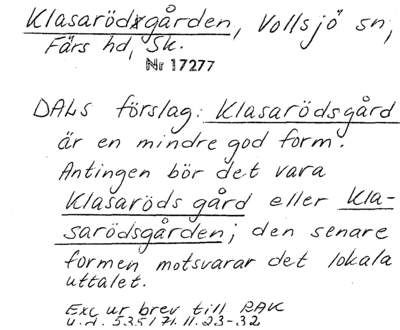 Klasarödsgården, Vollsjö sn,
Färs hd, Sk.
Nr 17277
DALs förslag: Klasarödsgård
är en mindre god form.
Antingen bör det vara
Klasaröds gård eller Kla-
sarödsgården; den senare
formen motsvarar det lokala
uttalet.
Exc ur brev till RAK
u.d. 535/71.11.23-32